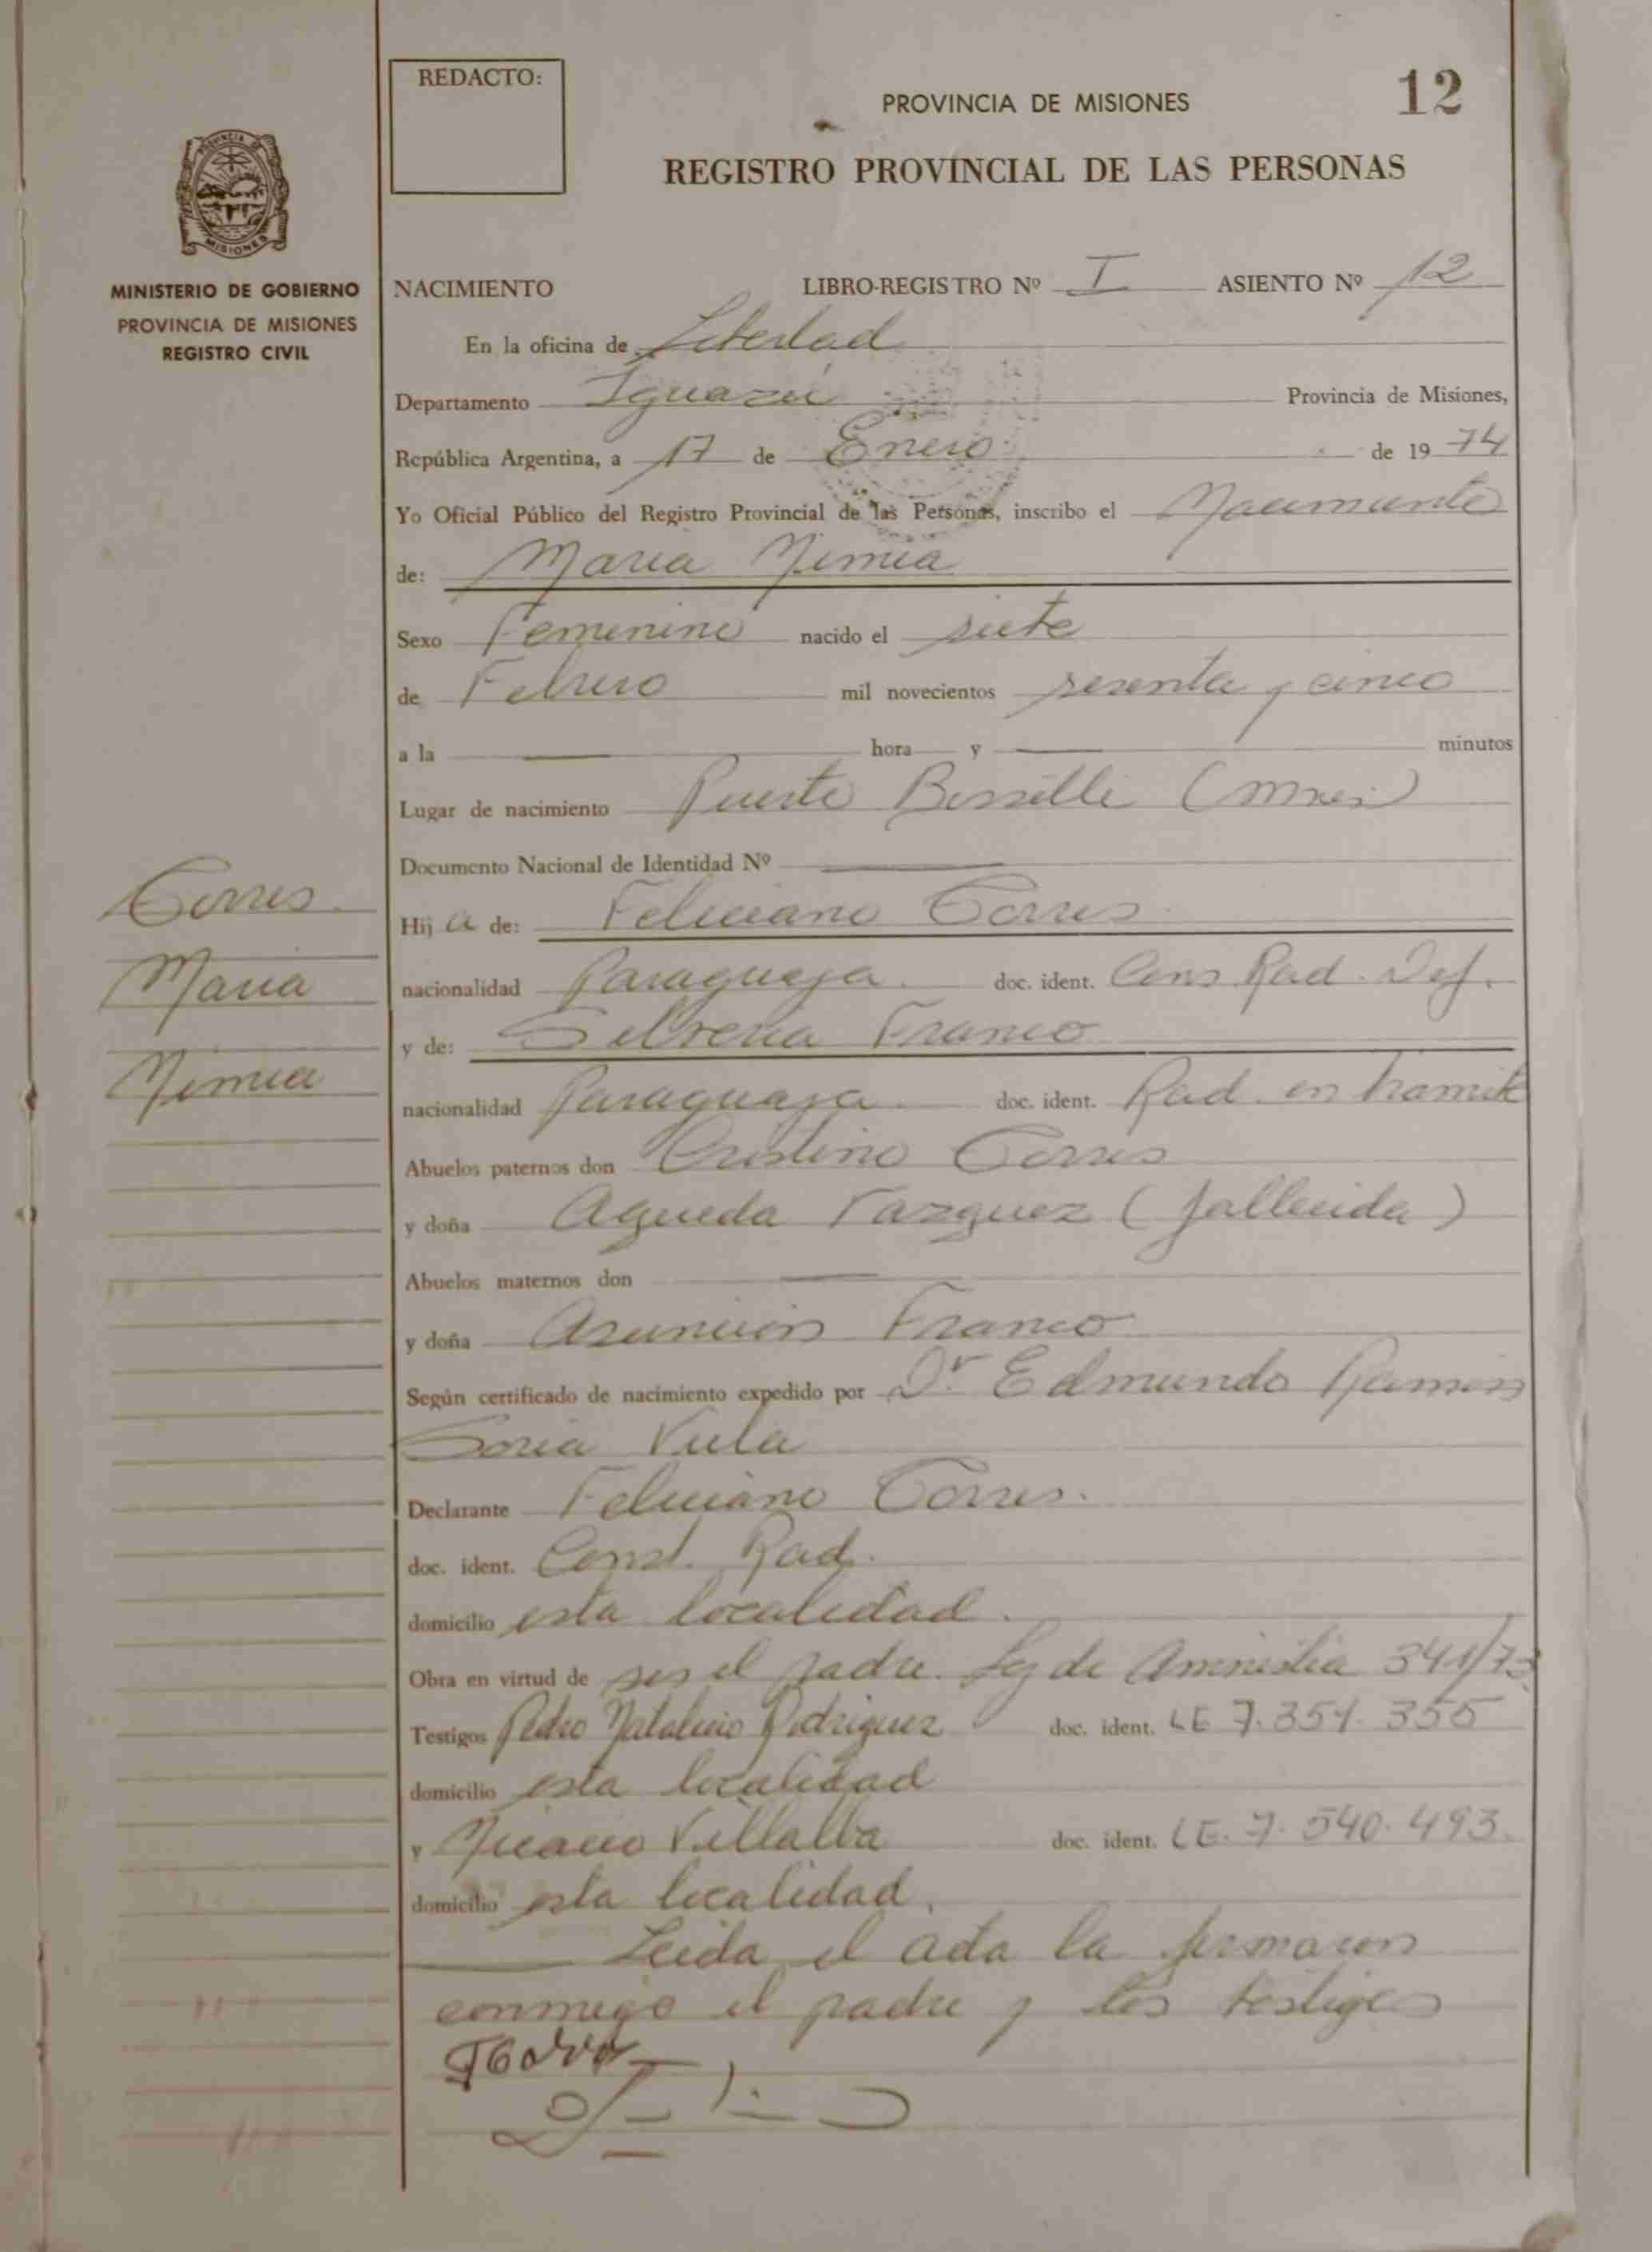 REDACTO:
PROVINCIA DE MISIONES
12
REGISTRO PROVINCIAL DE LAS PERSONAS
MISIONES
MINISTERIO DE GOBIERNO
PROVINCIA DE MISIONES
REGISTRO CIVIL
NACIMIENTO LIBRO-REGISTRO Nº I ASIENTO Nº 12
En la oficina de Libertad
Departamento Iguazú Provincia de Misiones,
República Argentina, a 17 de Enero de 1974
Yo Oficial Público del Registro Provincial de las Personas, inscribo el Nacimiento
de: Maria Nimia
Sexo Femenino nacido el siete
de Febrero mil novecientos sesenta y cinco
a la hora y minutos
Lugar de nacimiento Puerto (Mnes)
Documento Nacional de Identidad Nº
Torres
Maria
Nimia
Hija de: Feliciano Torres
nacionalidad Paraguaya doc. ident. Cons Rad. Def.
y de: Franco
nacionalidad Paraguaya doc. ident. Rad. en tramite
Abuelos paternos don Cristino Torres
y doña Agueda Vazquez (fallecida)
Abuelos maternos don
y doña Asunción Franco
Según certificado de nacimiento expedido por Dr Edmundo Ramón
Soria Viela
Declarante Feliciano Torres.
doc. ident. Const. Rad.
domicilio esta localidad.
Obra en virtud de ser el padre. Ley de Amnistia 341/73
Testigos Pedro Natalicio Rodriguez doc. ident. LE 7.354.355
domicilio esta localidad
y Nicacio Villalba doc. ident. LE. 7.540.493.
domicilio esta localidad.
Leida el acta la firmaron
conmigo el padre y los testigos